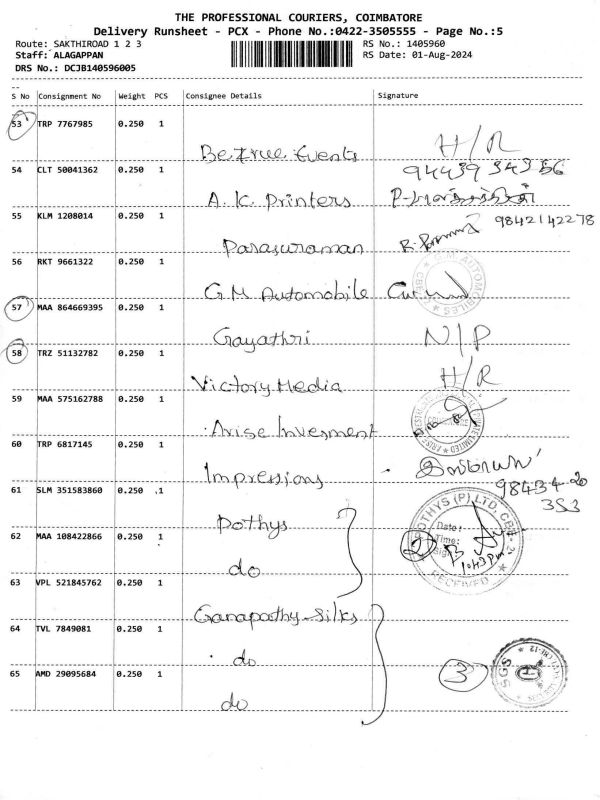 THE PROFESSIONAL COURIERS, COIMBATORE
Delivery Runsheet - PCX - Phone No.:0422-3505555 - Page No.:5
Route: SAKTHIROAD 1 2 3 RS No.: 1405960
Staff: ALAGAPPAN RS Date: 01-Aug-2024
DRS No.: DCJB140596005
S No Consignment No Weight PCS Consignee Details Signature
53 TRP 7767985 0.250 1
Betrue Events H/R
94439 34356
54 CLT 50041362 0.250 1
A. K. Printers
55 KLM 1208014 0.250 1 9842142278
Parasuraman
56 RKT 9661322 0.250 1
G.M Automobile
57 MAA 864669395 0.250 1
Gayathri N/P
58 TRZ 51132782 0.250 1
Victory Media H/R
59 MAA 575162788 0.250 1
Arise Invesment
60 TRP 6817145 0.250 1
Impressions
98434-20
353
61 SLM 351583860 0.250 1
Pothys
POTHYS (P) LTD, CBE-
Date:
Time:
RECEIVED
62 MAA 108422866 0.250 1 2
do
63 VPL 521845762 0.250 1
Ganapathy Silks
64 TVL 7849081 0.250 1
do
65 AMD 29095684 0.250 1 3
SGS
do